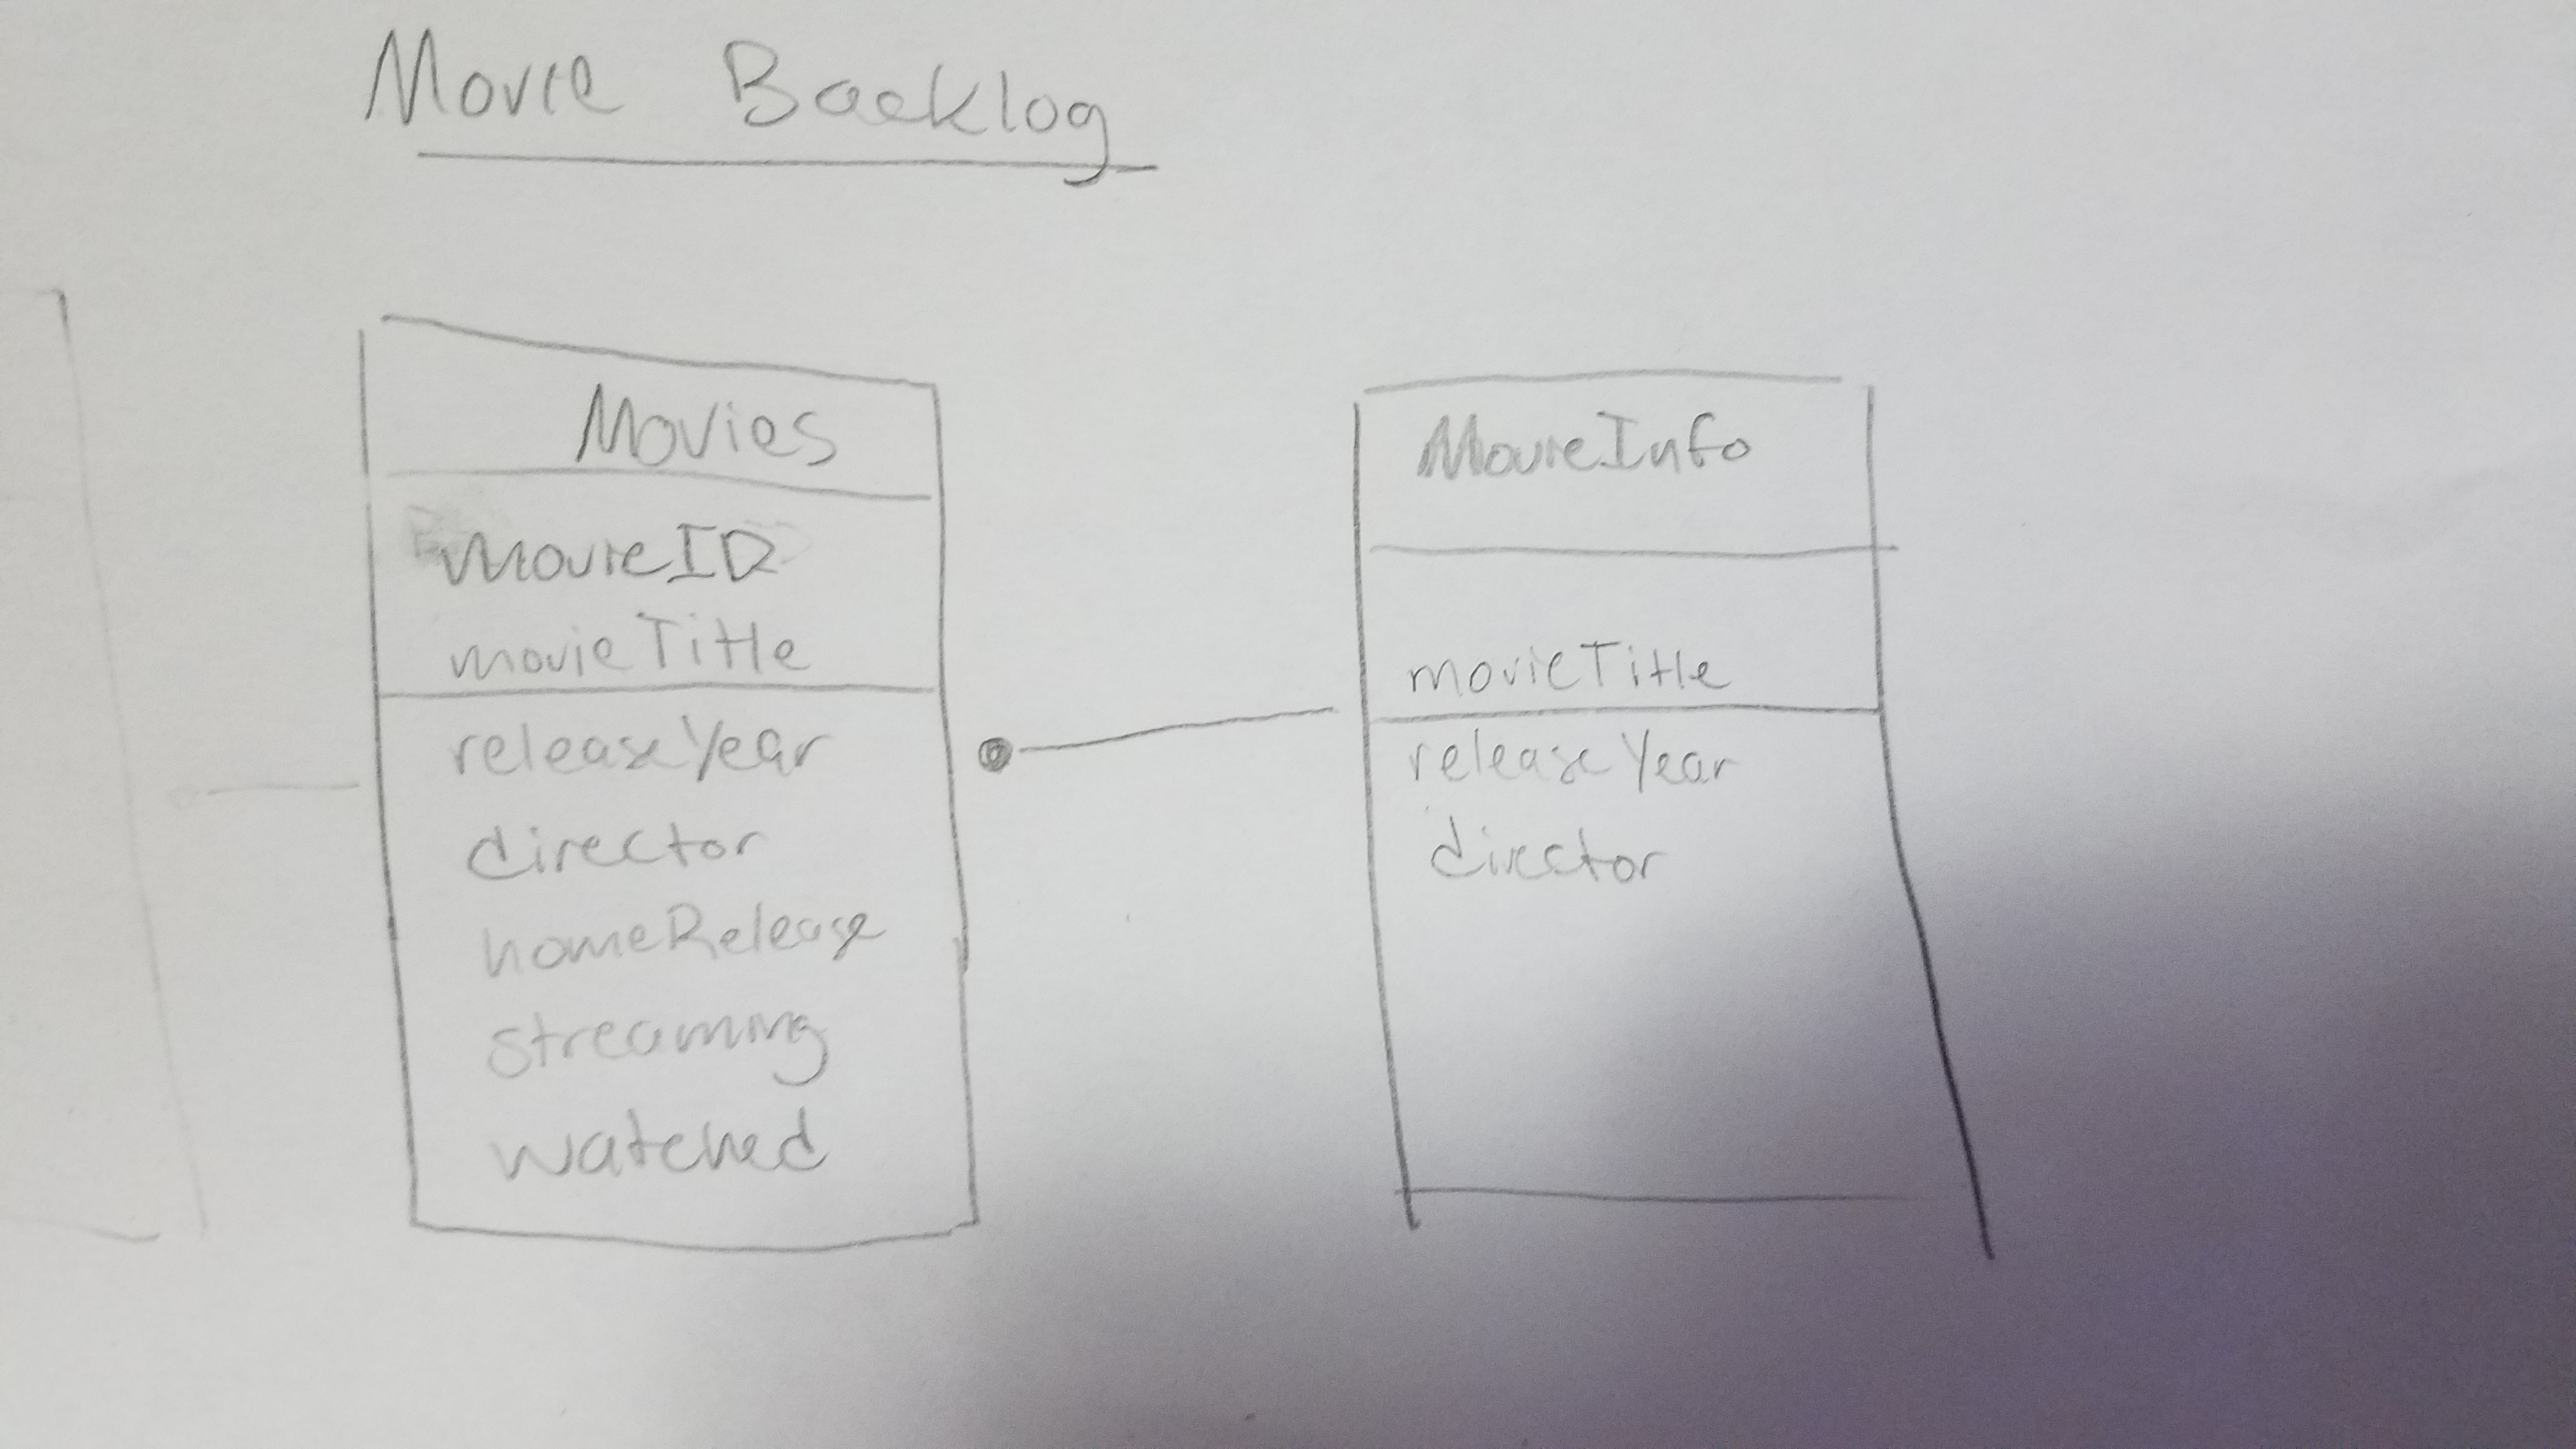 Movie Backlog
Movies
movieID
movieTitle
releaseYear
director
homeRelease
streaming
watched
MovieInfo
movieTitle
releaseYear
director